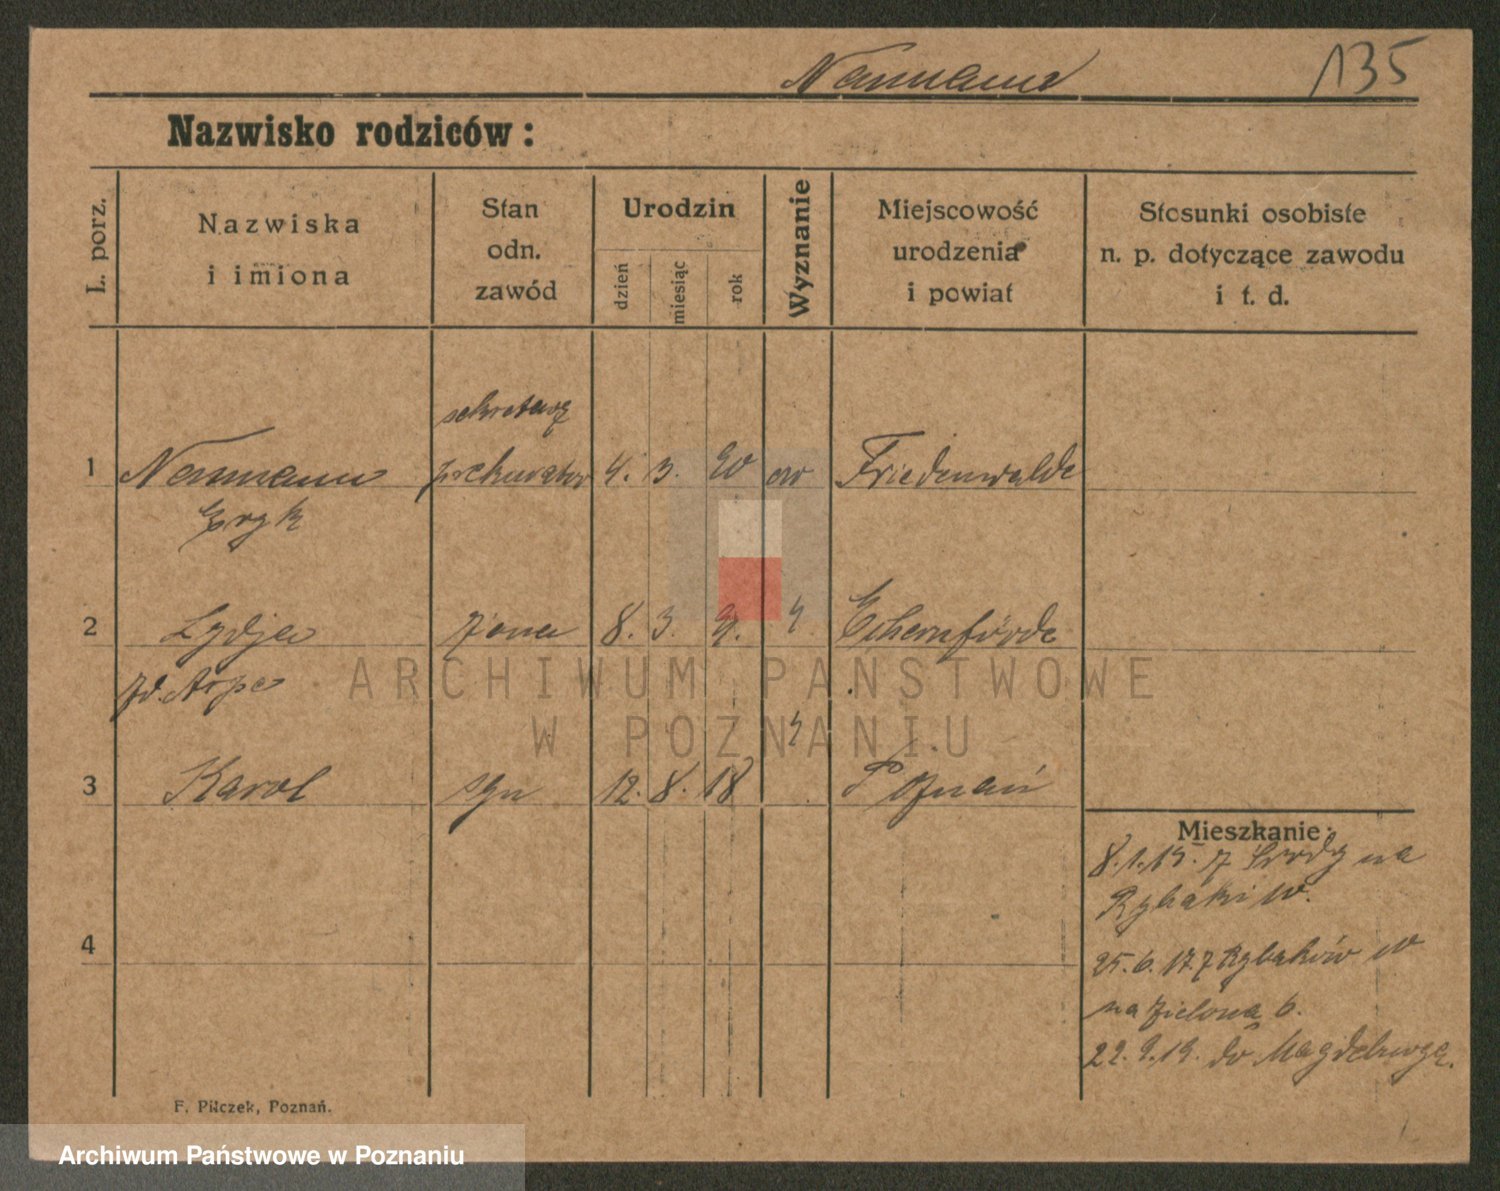 Naumann 135
Nazwisko rodziców:
L. porz.
Nazwiska
i imiona
Stan
odn.
zawód
Urodzin
dzień
miesiąc
rok
Wyznanie
Miejscowość
urodzenia
i powiat
Stosunki osobiste
n. p. dotyczące zawodu
i t. d.
1 Naumann 4. 3. ew Friedenwalde
Eryk
2 Lydja żona 8. 3. 9. Eckernförde
zd. Arpe
3 Karol syn 12. 8. 18 Poznań
4
Mieszkanie:
8. 1. 15. z Środy na
Rybaki
25. 6. 17. z Rybaków
na Zielona 6.
22. 9. 19. do Magdeburga.
F. Pilczek, Poznań.
ARCHIWUM PAŃSTWOWE
W POZNANIU
Archiwum Państwowe w Poznaniu